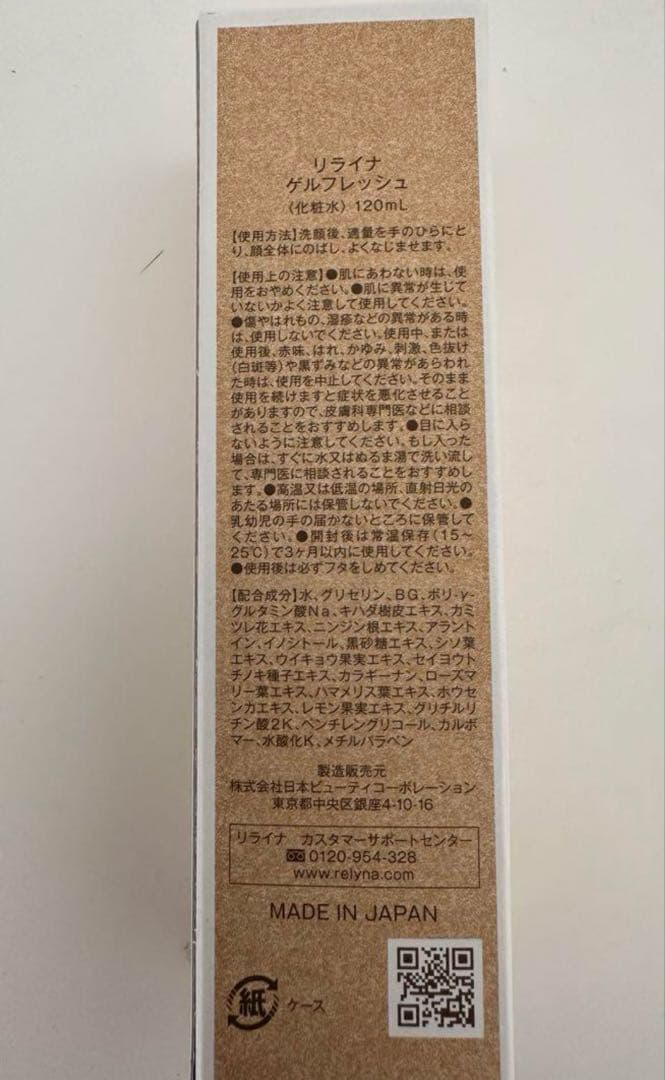 リライナ
ゲルフレッシュ
(化粧水) 120mL
【使用方法】洗顔後、適量を手のひらにと
り、顔全体にのばし、よくなじませます。
【使用上の注意】●肌にあわない時は、使
用をおやめください。●肌に異常が生じて
いないかよく注意して使用してください。
●傷やはれもの、湿疹などの異常がある時
は、使用しないでください。使用中、または
使用後、赤味、はれ、かゆみ、刺激、色抜け
(白斑等)や黒ずみなどの異常があらわれ
た時は、使用を中止してください。そのまま
使用を続けますと症状を悪化させること
がありますので、皮膚科専門医などに相談
されることをおすすめします。●目に入ら
ないように注意してください。もし入った
場合は、すぐに水又はぬるま湯で洗い流し
て、専門医に相談されることをおすすめし
ます。●高温又は低温の場所、直射日光の
あたる場所には保管しないでください。●
乳幼児の手の届かないところに保管して
ください。●開封後は常温保存(15〜
25℃)で3ヶ月以内に使用してください。
●使用後は必ずフタをしめてください。
【配合成分】水、グリセリン、BG、ポリ-γ-
グルタミン酸Na、キハダ樹皮エキス、カミ
ツレ花エキス、ニンジン根エキス、アラント
イン、イノシトール、黒砂糖エキス、シソ葉
エキス、ウイキョウ果実エキス、セイヨウト
チノキ種子エキス、カラギーナン、ローズマ
リー葉エキス、ハマメリス葉エキス、ホウセ
ンカエキス、レモン果実エキス、グリチルリ
チン酸2K、ペンチレングリコール、カルボ
マー、水酸化K、メチルパラベン
製造販売元
株式会社日本ビューティコーポレーション
東京都中央区銀座4-10-16
リライナ カスタマーサポートセンター
0120-954-328
www.relyna.com
MADE IN JAPAN
紙 ケース